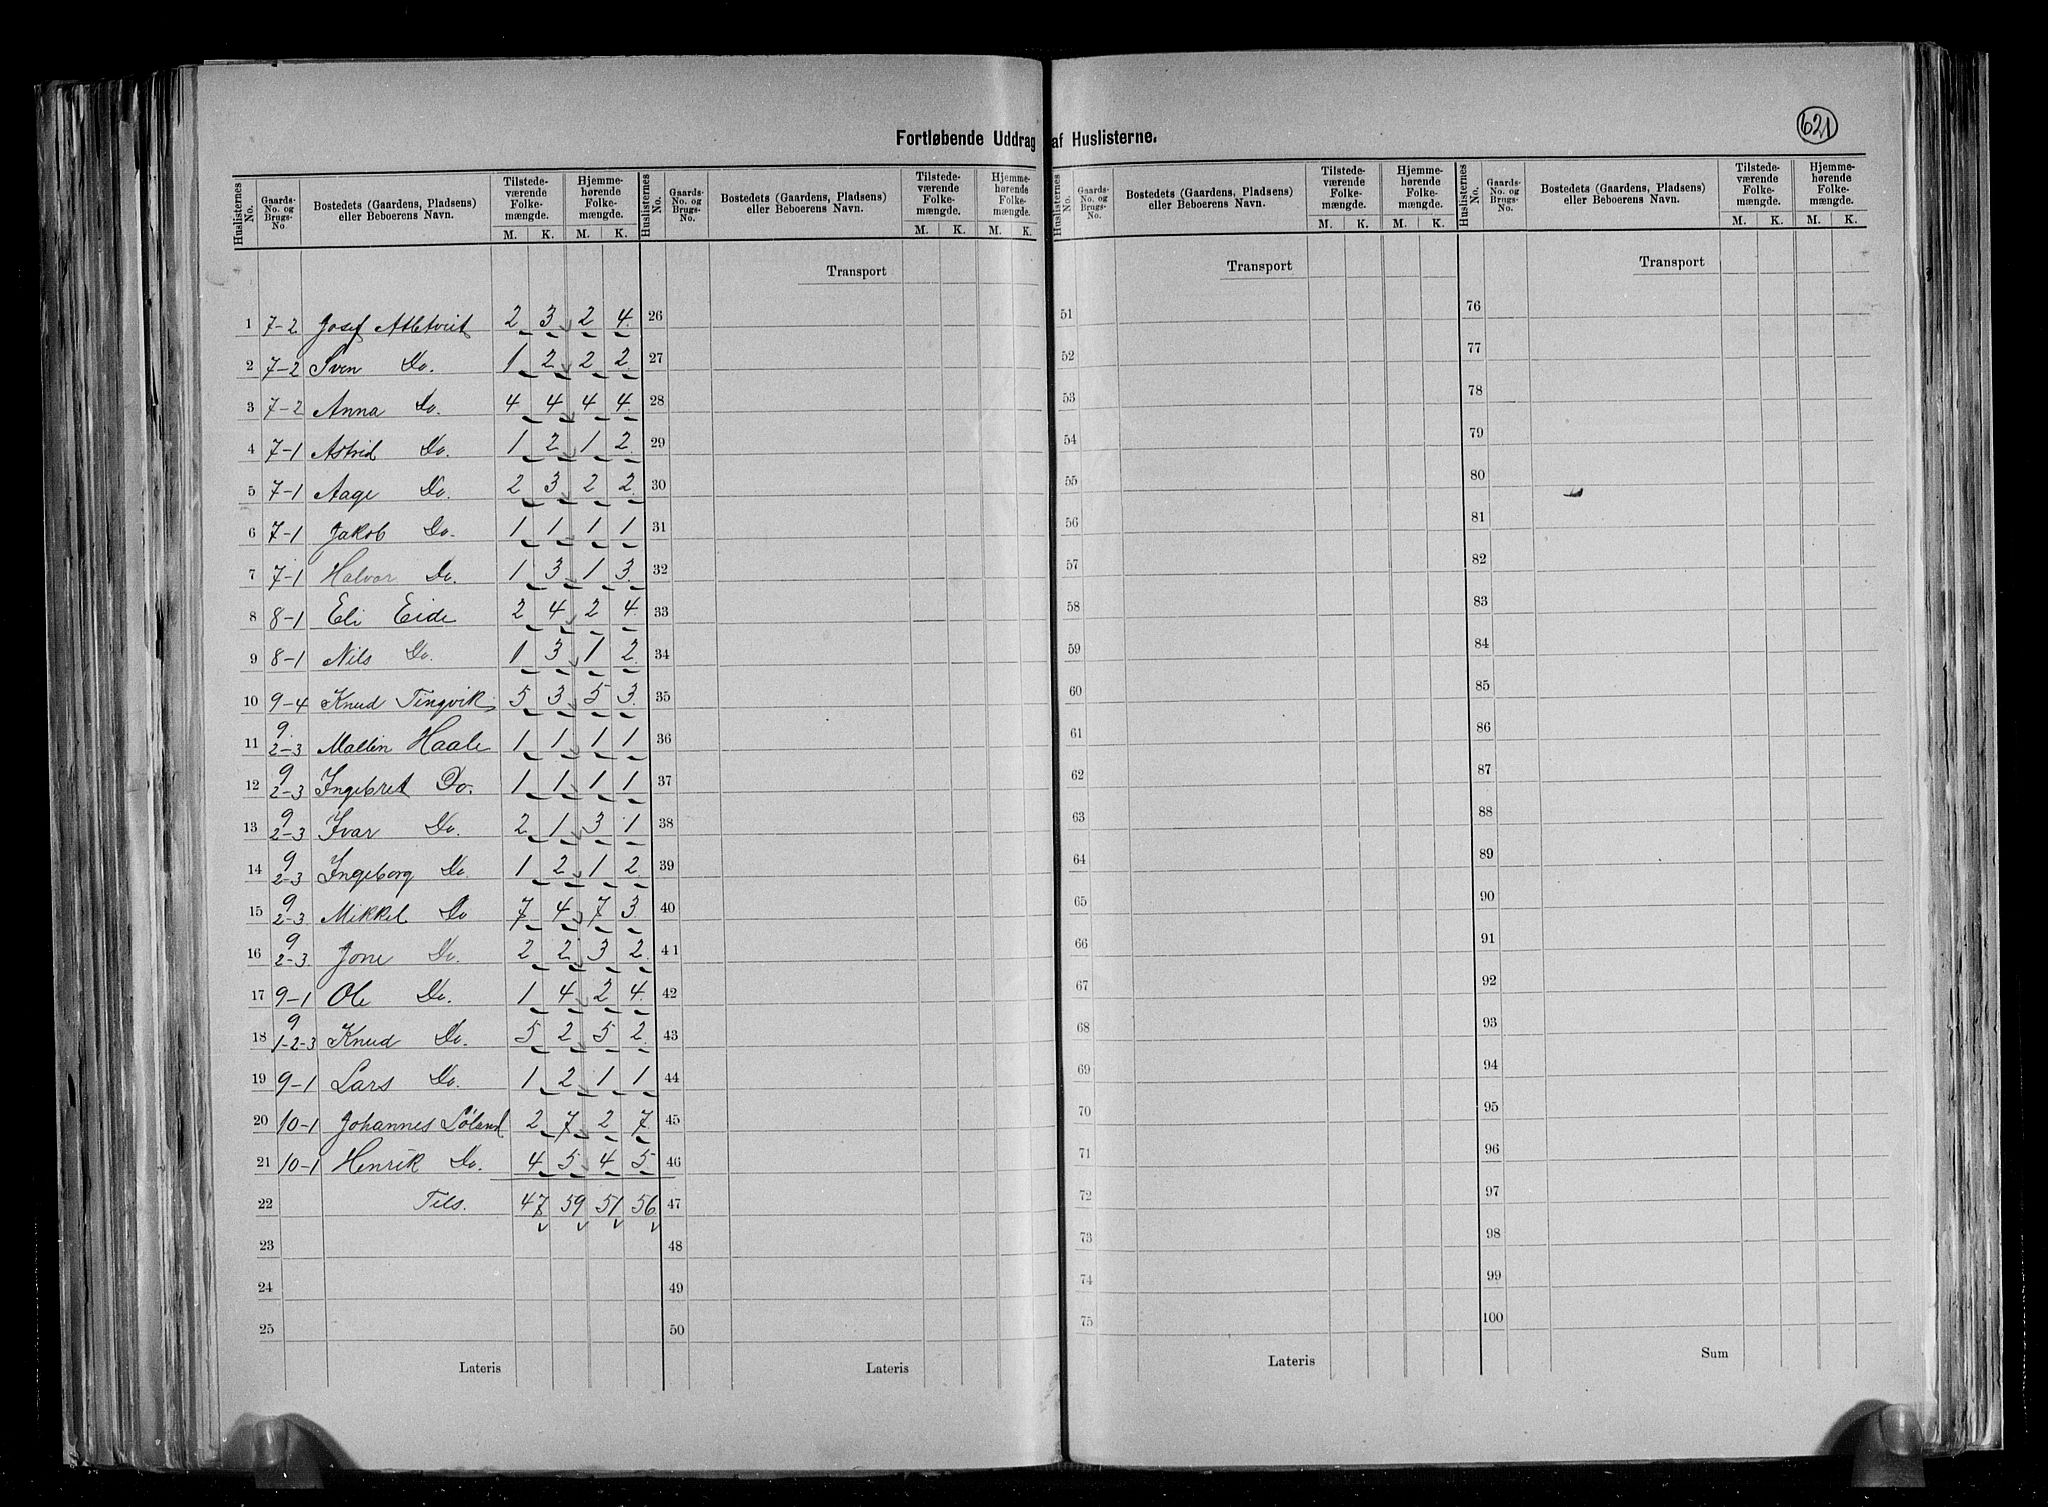 621
Fortløbende Uddrag af Huslisterne.
Huslisternes No. Gaards-No. og Brugs-No. Bostedets (Gaardens, Pladsens) eller Beboerens Navn. Tilstedeværende Folkemængde. M. K. Hjemmehørende Folkemængde. M. K.
Huslisternes No. Gaards-No. og Brugs-No. Bostedets (Gaardens, Pladsens) eller Beboerens Navn. Tilstedeværende Folkemængde. M. K. Hjemmehørende Folkemængde. M. K.
Huslisternes No. Gaards-No. og Brugs-No. Bostedets (Gaardens, Pladsens) eller Beboerens Navn. Tilstedeværende Folkemængde. M. K. Hjemmehørende Folkemængde. M. K.
Huslisternes No. Gaards-No. og Brugs-No. Bostedets (Gaardens, Pladsens) eller Beboerens Navn. Tilstedeværende Folkemængde. M. K. Hjemmehørende Folkemængde. M. K.
Transport Transport Transport
1 7-2 Josef 2 3 2 4 26 51 76
2 7-2 Sven Do. 1 2 2 2 27 52 77
3 7-2 Anna Do. 4 4 4 4 28 53 78
4 7-1 Astrid Do. 1 2 1 2 29 54 79
5 7-1 Aage Do. 2 3 2 2 30 55 80
6 7-1 Jakob Do. 1 1 1 1 31 56 81
7 7-1 Halvor Do. 1 3 1 3 32 57 82
8 8-1 Eli Eide 2 4 2 4 33 58 83
9 8-1 Nils Do. 1 3 1 2 34 59 84
10 9-4 Knud Tingvik 5 3 5 3 35 60 85
11 9 2-3 Maltin Haale 1 1 1 1 36 61 86
12 9 2-3 Ingebret Do. 1 1 1 1 37 62 87
13 9 2-3 Ivar Do. 2 1 3 1 38 63 88
14 9 2-3 Ingeborg Do 1 2 1 2 39 64 89
15 9 2-3 Mikkel Do 7 4 7 3 40 65 90
16 9 2-3 Jone Do. 2 2 3 2 41 66 91
17 9-1 Ole Do. 1 4 2 4 42 67 92
18 9 1-2-3 Knud Do. 5 2 5 2 43 68 93
19 9-1 Lars Do. 1 2 1 1 44 69 94
20 10-1 Johannes Løland 2 7 2 7 45 70 95
21 10-1 Henrik Do. 4 5 4 5 46 71 96
22 Tils. 47 59 51 56 47 72 97
23 48 73 98
24 49 74 99
25 50 75 100
Lateris Lateris Lateris Sum